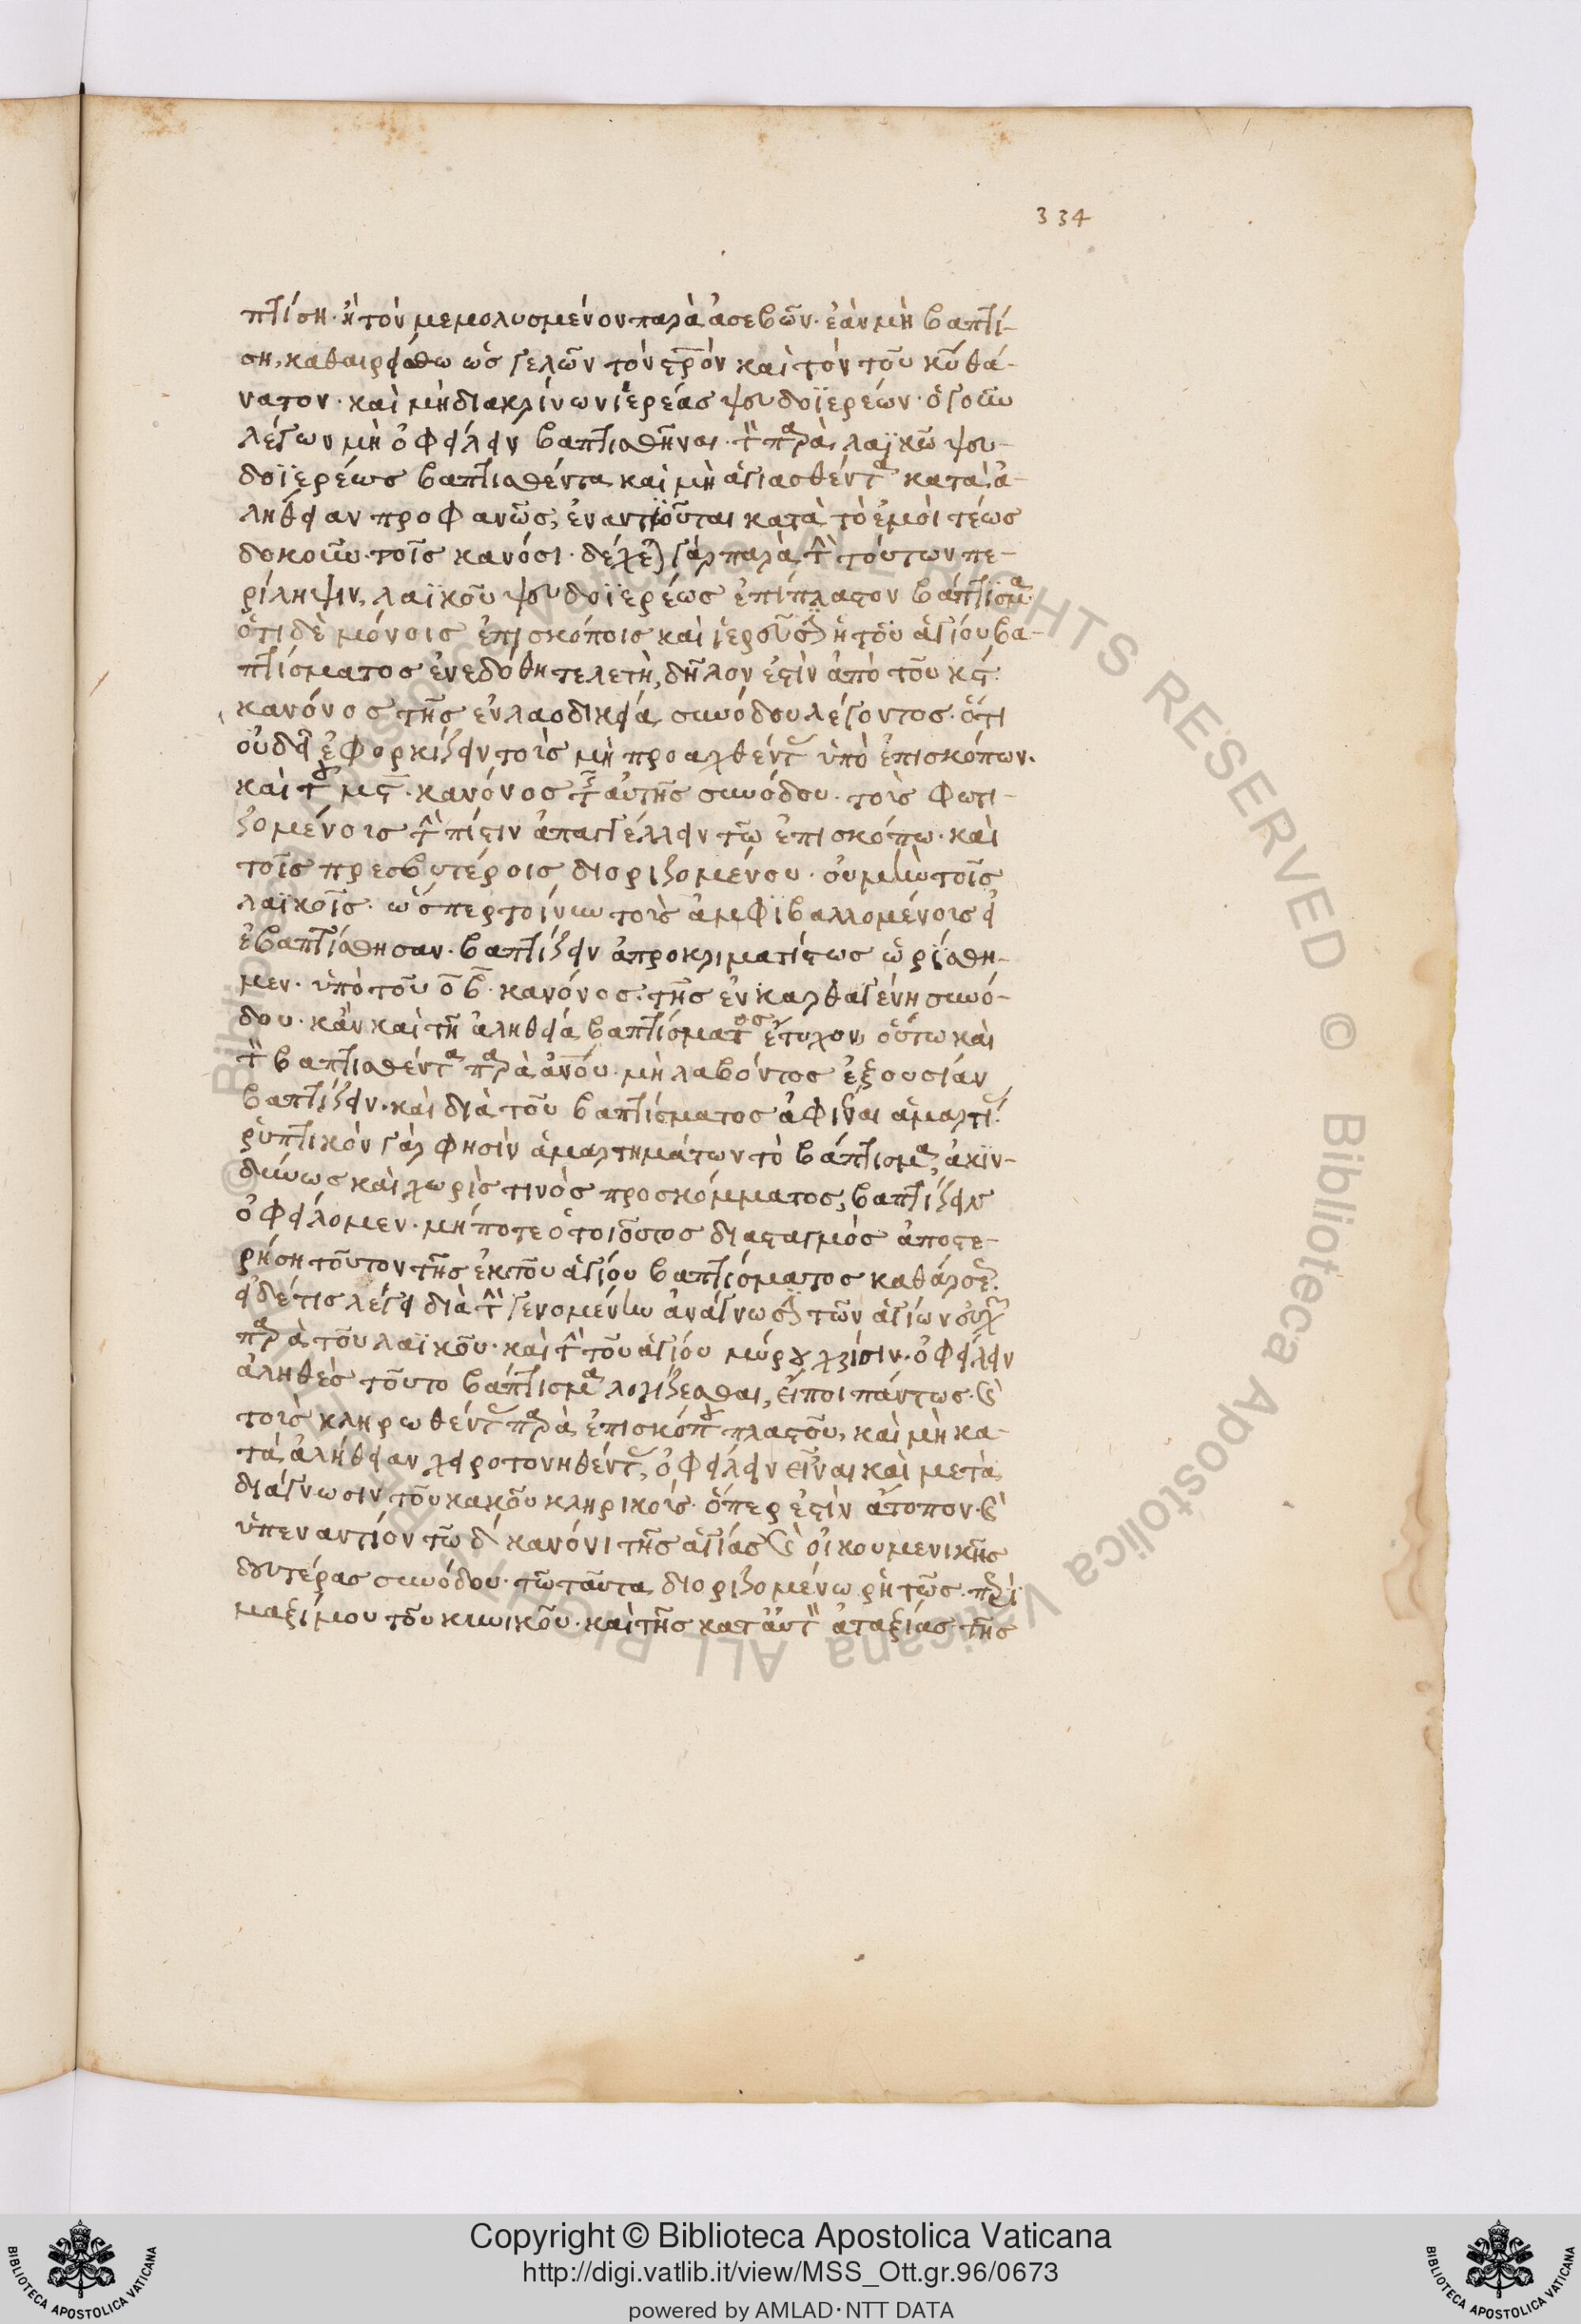 334
πτίση· ἢ τὸν μεμολυσμένον παρὰ ἀσεβῶν· ἐὰν μὴ βαπτί-
ση, καθαιρείσθω ὡς γελῶν τὸν στρον καὶ τὸν τοῦ κυ θά-
νατον· καὶ μὴ διακρίνων ἱερέας ψευδοϊερέων· ὁ γοῦν
λέγων μὴ ὀφείλειν βαπτισθῆναι· τὸν παρὰ λαϊκοῦ ψευ-
δοϊερέως βαπτισθέντα καὶ μὴ ἁγιασθέντα κατὰ ἀ-
λήθειαν προφανῶς, ἐναντιοῦται κατὰ τὸ ἐμοὶ τέως
δοκοῦν· τοῖς κανόσι· δέχεται γὰρ παρὰ τὴν τούτων πε-
ρίληψιν, λαϊκοῦ ψευδοϊερέως ἐπίπλαστον βάπτισμα·
ὅτι δὲ μόνοις ἐπισκόποις καὶ ἱερεῦσιν ἡ τοῦ ἁγίου βα-
πτίσματος ἐνεδόθη τελετὴ, δῆλον ἐστὶν ἀπὸ τοῦ κς·
κανόνος τῆς ἐν λαοδικεία συνόδου λέγοντος· ὅτι
οὐ δεῖ ἐφορκίζειν τοῖς μὴ προαχθέντας ὑπὸ ἐπισκόπων·
καὶ τοῦ μς· κανόνος τῆς αὐτῆς συνόδου· τοῖς φωτι-
ζομένοις τὴν πίστιν ἀπαγγέλλειν τῶ ἐπισκόπω· καὶ
τοῖς πρεσβυτέροις διοριζομένου· οὐ μὴν τοῖς
λαϊκοῖς· ὥσπερ τοίνυν τοὺς ἀμφιβαλλομένους εἰ
ἐβαπτίσθησαν· βαπτίζειν ἀπροκριματίστως ὡρίσθη-
μεν· ὑπὸ τοῦ οβ· κανόνος· τῆς ἐν καρθαγένη συνό-
δου· κἂν καὶ τῆ ἀληθεία βαπτίσματος ἔτυχον, οὕτω καὶ
τὸν βαπτισθέντα παρὰ ἀνου· μὴ λαβόντος ἐξουσίαν
βαπτίζειν· καὶ διὰ τοῦ βαπτίσματος ἀφιέναι ἁμαρτίας·
ῥυπτικὸν γάρ φησιν ἁμαρτημάτων τὸ βάπτισμα, ἀκιν-
δύνως καὶ χωρίς τινος προσκόμματος, βαπτίζειν
ὀφείλομεν· μήποτε ὁ τοιοῦτος δισταγμὸς ἀποστε-
ρήση τοῦτον τῆς ἐκ τοῦ ἁγίου βαπτίσματος καθάρσεως·
εἰ δέ τις λέγει διὰ τὴν γενομένην ἀνάγνωσιν τῶν ἁγίων εὐχῶν
παρὰ τοῦ λαϊκοῦ· καὶ τὴν τοῦ ἁγίου μύρου χρίσιν· ὀφείλειν
ἀληθὲς τοῦτο βάπτισμα λογίζεσθαι, εἴποι πάντως· καὶ
τοὺς κληρωθέντας παρὰ ἐπισκόπου πλαστοῦ, καὶ μὴ κα-
τὰ ἀλήθειαν χειροτονηθέντας, ὀφείλειν εἶναι καὶ μετὰ
διάγνωσιν τοῦ κακοῦ κληρικούς· ὅπερ ἐστὶν ἄτοπον· καὶ
ὑπεναντίον τῶ δ κανόνι τῆς ἁγίας καὶ οἰκουμενικῆς
δευτέρας συνόδου· τῶ ταῦτα διοριζομένω ῥητῶς· περὶ
μαξίμου τοῦ κυνικοῦ· καὶ τῆς κατ' αὐτὸν ἀταξίας τῆς
Copyright © Biblioteca Apostolica Vaticana
http://digi.vatlib.it/view/MSS_Ott.gr.96/0673
powered by AMLAD·NTT DATA
BIBLIOTECA APOSTOLICA VATICANA
BIBLIOTECA APOSTOLICA VATICANA
© Biblioteca Apostolica Vaticana ALL RIGHTS RESERVED © Biblioteca Apostolica Vaticana ALL RIGHTS RESERVED